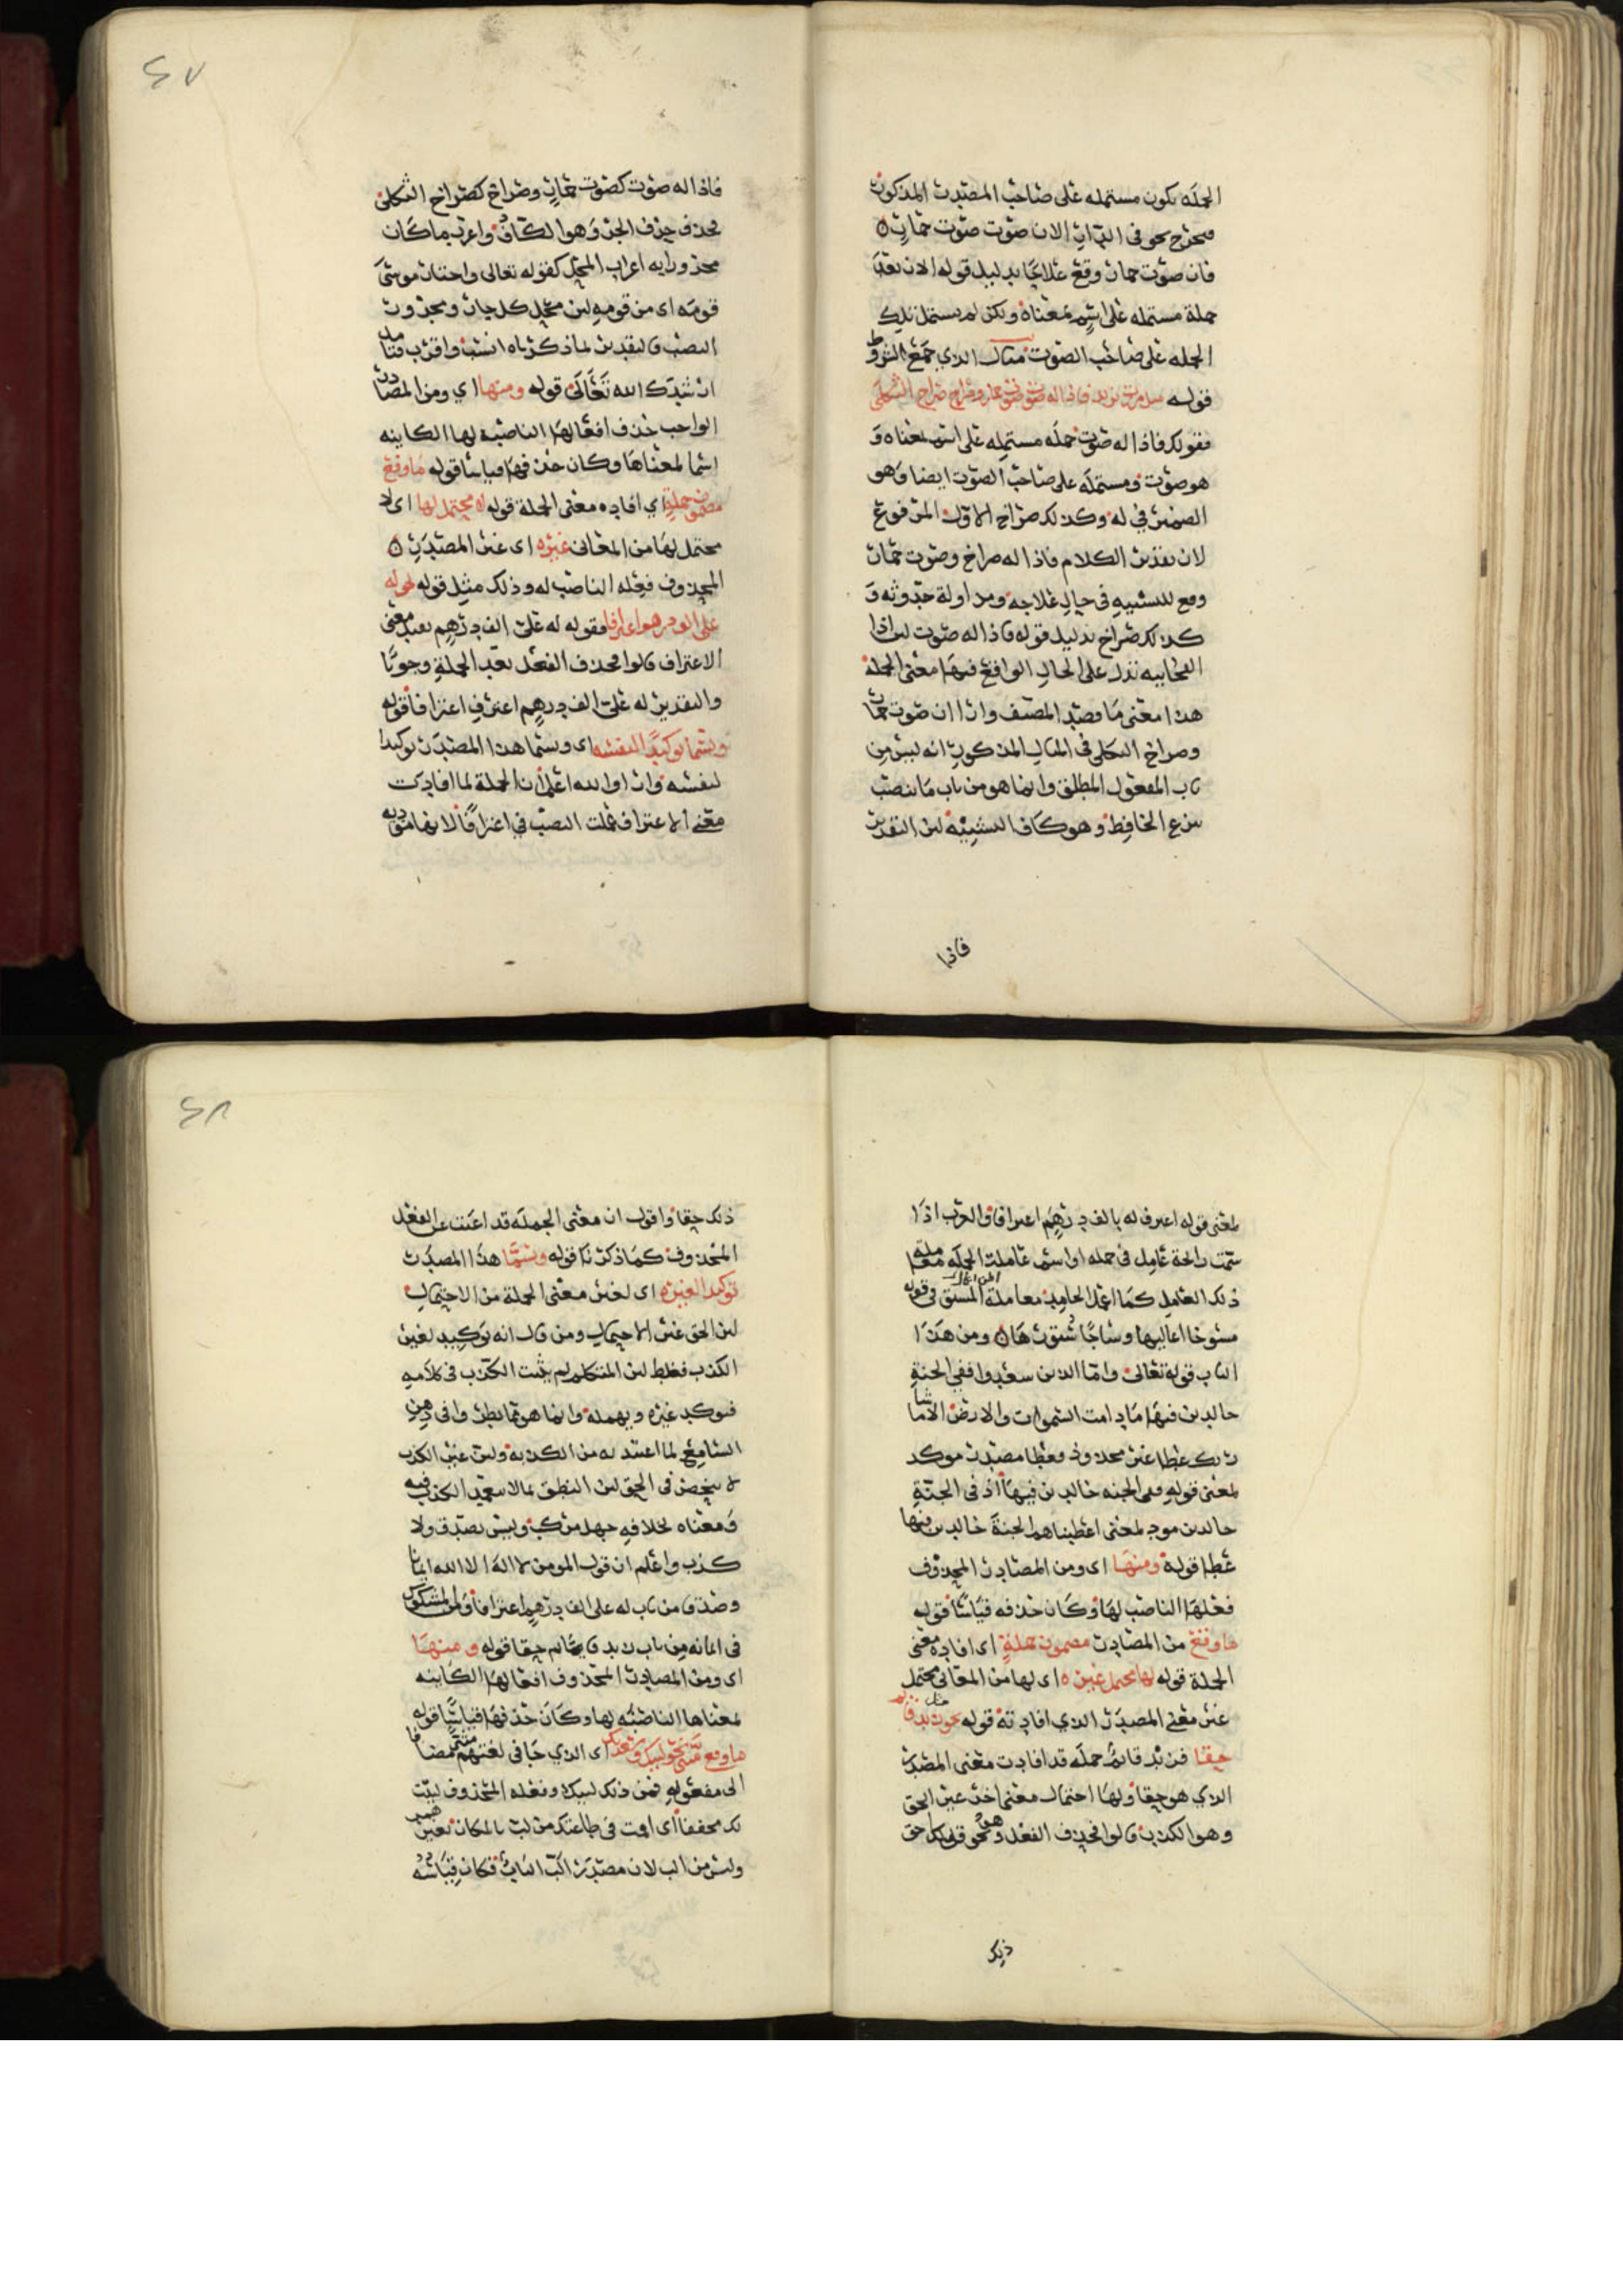 الجملة يكون مستمله على صاحب المصدر المذكور
فيخرج نحو في الدار الان صوت صوت حمار
فان صوت حمار وقع علاجا بدليل قوله الان بعد
جملة مستمله على اسم بمعناه ولكن لم يستمل تلك
الجمله على صاحب الصوت مثال الذي جمع الشروط
قوله مثل مررت بزيد فاذا له صوت صوت حمار وصراخ صراخ الثكلى
فقولك فاذا له صوت جمله مستمله على اسم بمعناه و
هو صوت ومستمله على صاحب الصوت ايضا وهو
الضمير في له وكذلك صراخ الاول المرفوع
لان تقدير الكلام فاذا له صراخ وصوت حمار
وقع للتشبيه في حال علاجه ومداولة حدوثه و
كذلك صراخ بدليل قوله فاذا له صوت لان اذا
الفجاييه تدل على الحال الواقع فيها معنى الجملة
هذا معنى ما قصد المصنف وارا ان صوت حمار
وصراخ الثكلى في المثال المذكور انه ليس من
باب المفعول المطلق وانما هو من باب ما ينصب
بنزع الخافض وهو كاف التشبيه لان التقدير
فاذا
٢٧
فاذا له صوت كصوت حمار وصراخ كصراخ الثكلى
فحذف حرف الجر وهو الكاف واعرب ما كان
مجرورا به اعراب المحل كقوله تعالى واختار موسى
قومه اى من قومه لان محل كل جار ومجرور
النصب فالتقدير لما ذكرناه انسب واقرب فتامل
ارشدك الله تعالى قوله ومنها اي ومن المصادر
الواجب حذف افعالها الناصبة لها الكاينه
اسما لمعناها وكان حذفها قياسا قوله ما وقع
مضمون جملة اي افاده معنى الجملة قوله لا محتمل لها اى لا
محتمل لها من المعانى غيره اى غير المصدر
المحذوف فعله الناصب له وذلك مثل قوله له
على الف درهم اعترافا فقوله له على الف درهم يفيد معنى
الاعتراف قالوا فحذف الفعل بعد الجملة وجوبا
والتقدير له على الف درهم اعترف اعترافا قوله
ويسما توكيدا لنفسه اى ويسما هذا المصدر توكيدا
لنفسه وارا والله اعلم ان الجملة لما افادت
معنى الاعتراف عملت النصب في اعترافا لانها موديه
لمعنى قوله اعترف له بالف درهم اعترافا والعرب اذا
شمت رائحة عامل في جمله او اسم عاملت الجملة معاملة
ذلك العامل كما اعمل الجامد معاملة المشتق في قوله
منسوخا اعاليها وساجا ستورها ومن هذا
الباب قوله تعالى واما الذين سعدوا ففي الجنة
خالدين فيها ما دامت السموات والارض الا ما شا
ربك عطا غير مجذوذ فعطا مصدر موكد
لمعنى قوله ففى الجنه خالدين فيها اذ في الجنة
خالدين موجد لمعنى اعطيناهم الجنة خالدين فيها
عطا قوله ومنها اى ومن المصادر المحذوف
فعلها الناصب لها وكان حذفه قياسا قوله
ما وقع من المصادر مضمون جملة اى افاده معنى
الجملة قوله لها محتمل غيره اى لها من المعانى محتمل
غير معنى المصدر الذي افادته قوله نحو زيد قائم
حقا فزيد قائم جمله قد افادت معنى المصدر
الذي هو حقا ولها احتمال معنى اخر غير الحق
وهو الكذب قالوا فحذف الفعل وهو نحو قولك احق
ذلك
٢٨
ذلك حقا واقول ان معنى الجمله قد اغنت عن الفعل
المحذوف كما ذكرنا قوله ويسما هذا المصدر
توكيدا لغيره اى لغير معنى الجملة من الاحتمال
لان الحق غير الاحتمال ومن قال انه توكيد لغير
الكذب فغلط لان المتكلم لم يثبت الكذب في كلامه
فيوكد غيره ويهمله وانما هو مما يطرا في ذهن
السامع لما اعتد له من الكذبه وليس غير الكذب
لا ينحصر في الحق لان النطق بما لا تعمد الكذب فيه
ومعناه بخلافه جهل مركب وليس بصدق ولا
كذب واعلم ان قول المومن لا اله الا الله ايمانا
وصدقا من باب له على الف درهم اعترافا ولمن المشكوك
فى ايمانه من باب زيد قائم حقا قوله ومنها
اى ومن المصادر المحذوف افعالها الكاينه
لمعناها الناصبه لها وكان حذفها قياسا قوله
ما وقع مثنى نحو لبيك وسعديك اى الذي جا في لغتهم مثنى مضافا
الى مفعوله فمن ذلك لبيك وفعله المحذوف لبيت
لك مخففا اى اقمت في طاعتك من لب بالمكان بغير همز
وليس من الب لان مصدر الب الباب فكان قياسه